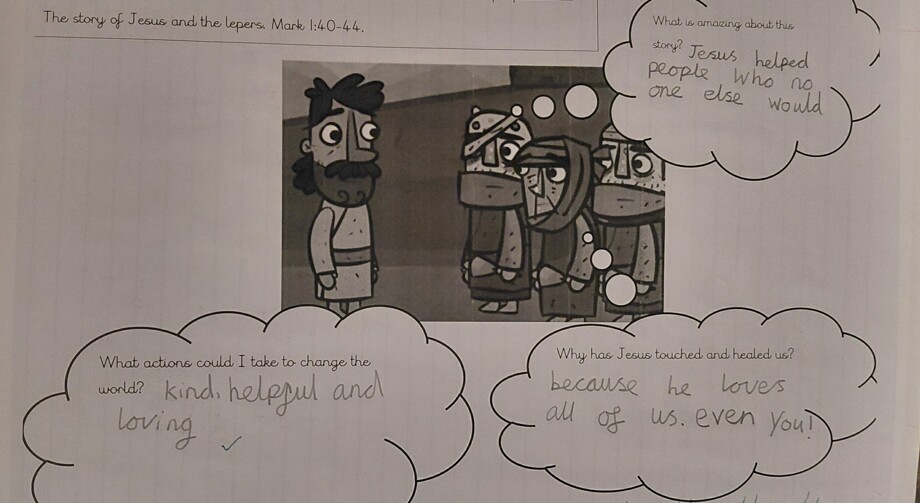 The story of Jesus and the lepers. Mark 1:40-44.
What is amazing about this
story? Jesus helped
people who no
one else would
What actions could I take to change the
world? kind, helpful and
loving
Why has Jesus touched and healed us?
because he loves
all of us. even you!